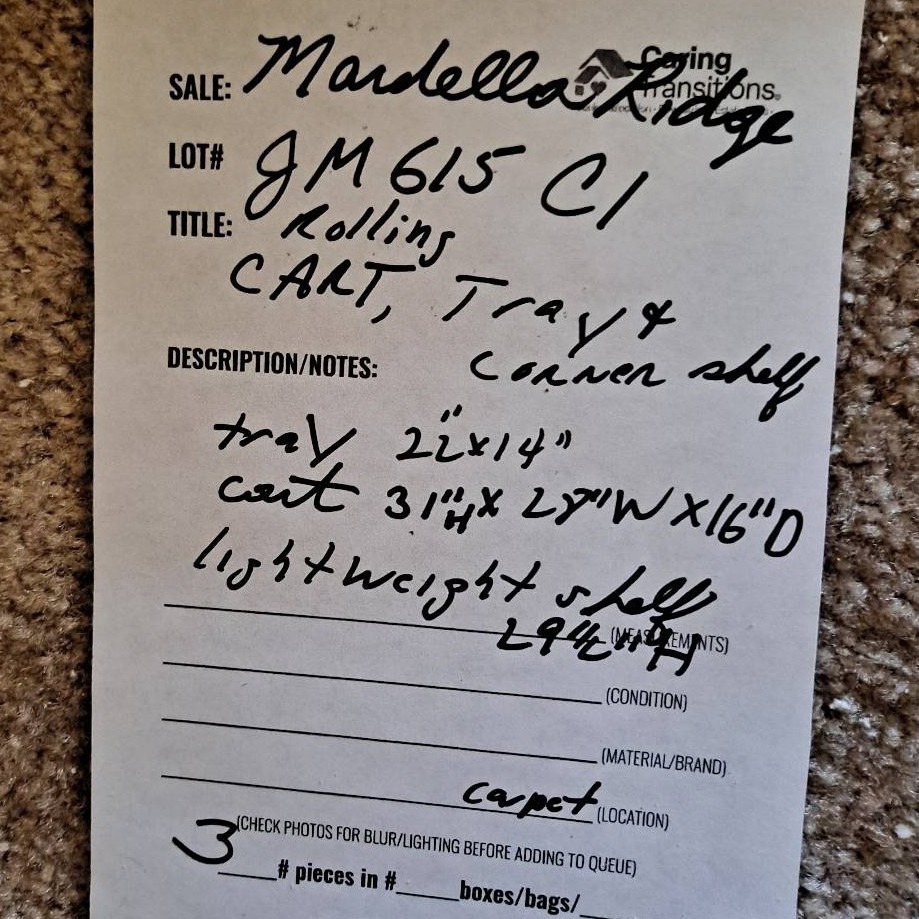 Caring
Transitions®
SALE: Mardella Ridge
LOT# JM 615 C1
TITLE: Rolling
CART, Tray &
Corner shelf
DESCRIPTION/NOTES:
tray 22"x14"
cart 31"H x 28"W x 16"D
lightweight shelf
29½"H
(MEASUREMENTS)
(CONDITION)
(MATERIAL/BRAND)
carpet (LOCATION)
(CHECK PHOTOS FOR BLUR/LIGHTING BEFORE ADDING TO QUEUE)
3 # pieces in #____boxes/bags/__